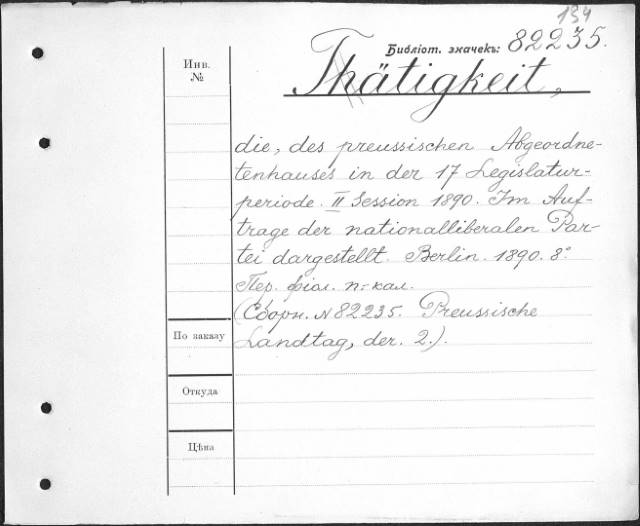 134
Библіот. значекъ: 82235.
Инв.
№
Thätigkeit,
die, des preussischen Abgeordne-
tenhauses in der 17 Legislatur-
periode. II Session 1890. Im Auf-
trage der nationalliberalen Par-
tei dargestellt. Berlin. 1890. 8°
Пер. фіол. п.-кал.
(Сборн. № 82235. Preussische
Landtag, der. 2.).
По заказу
Откуда
Цѣна